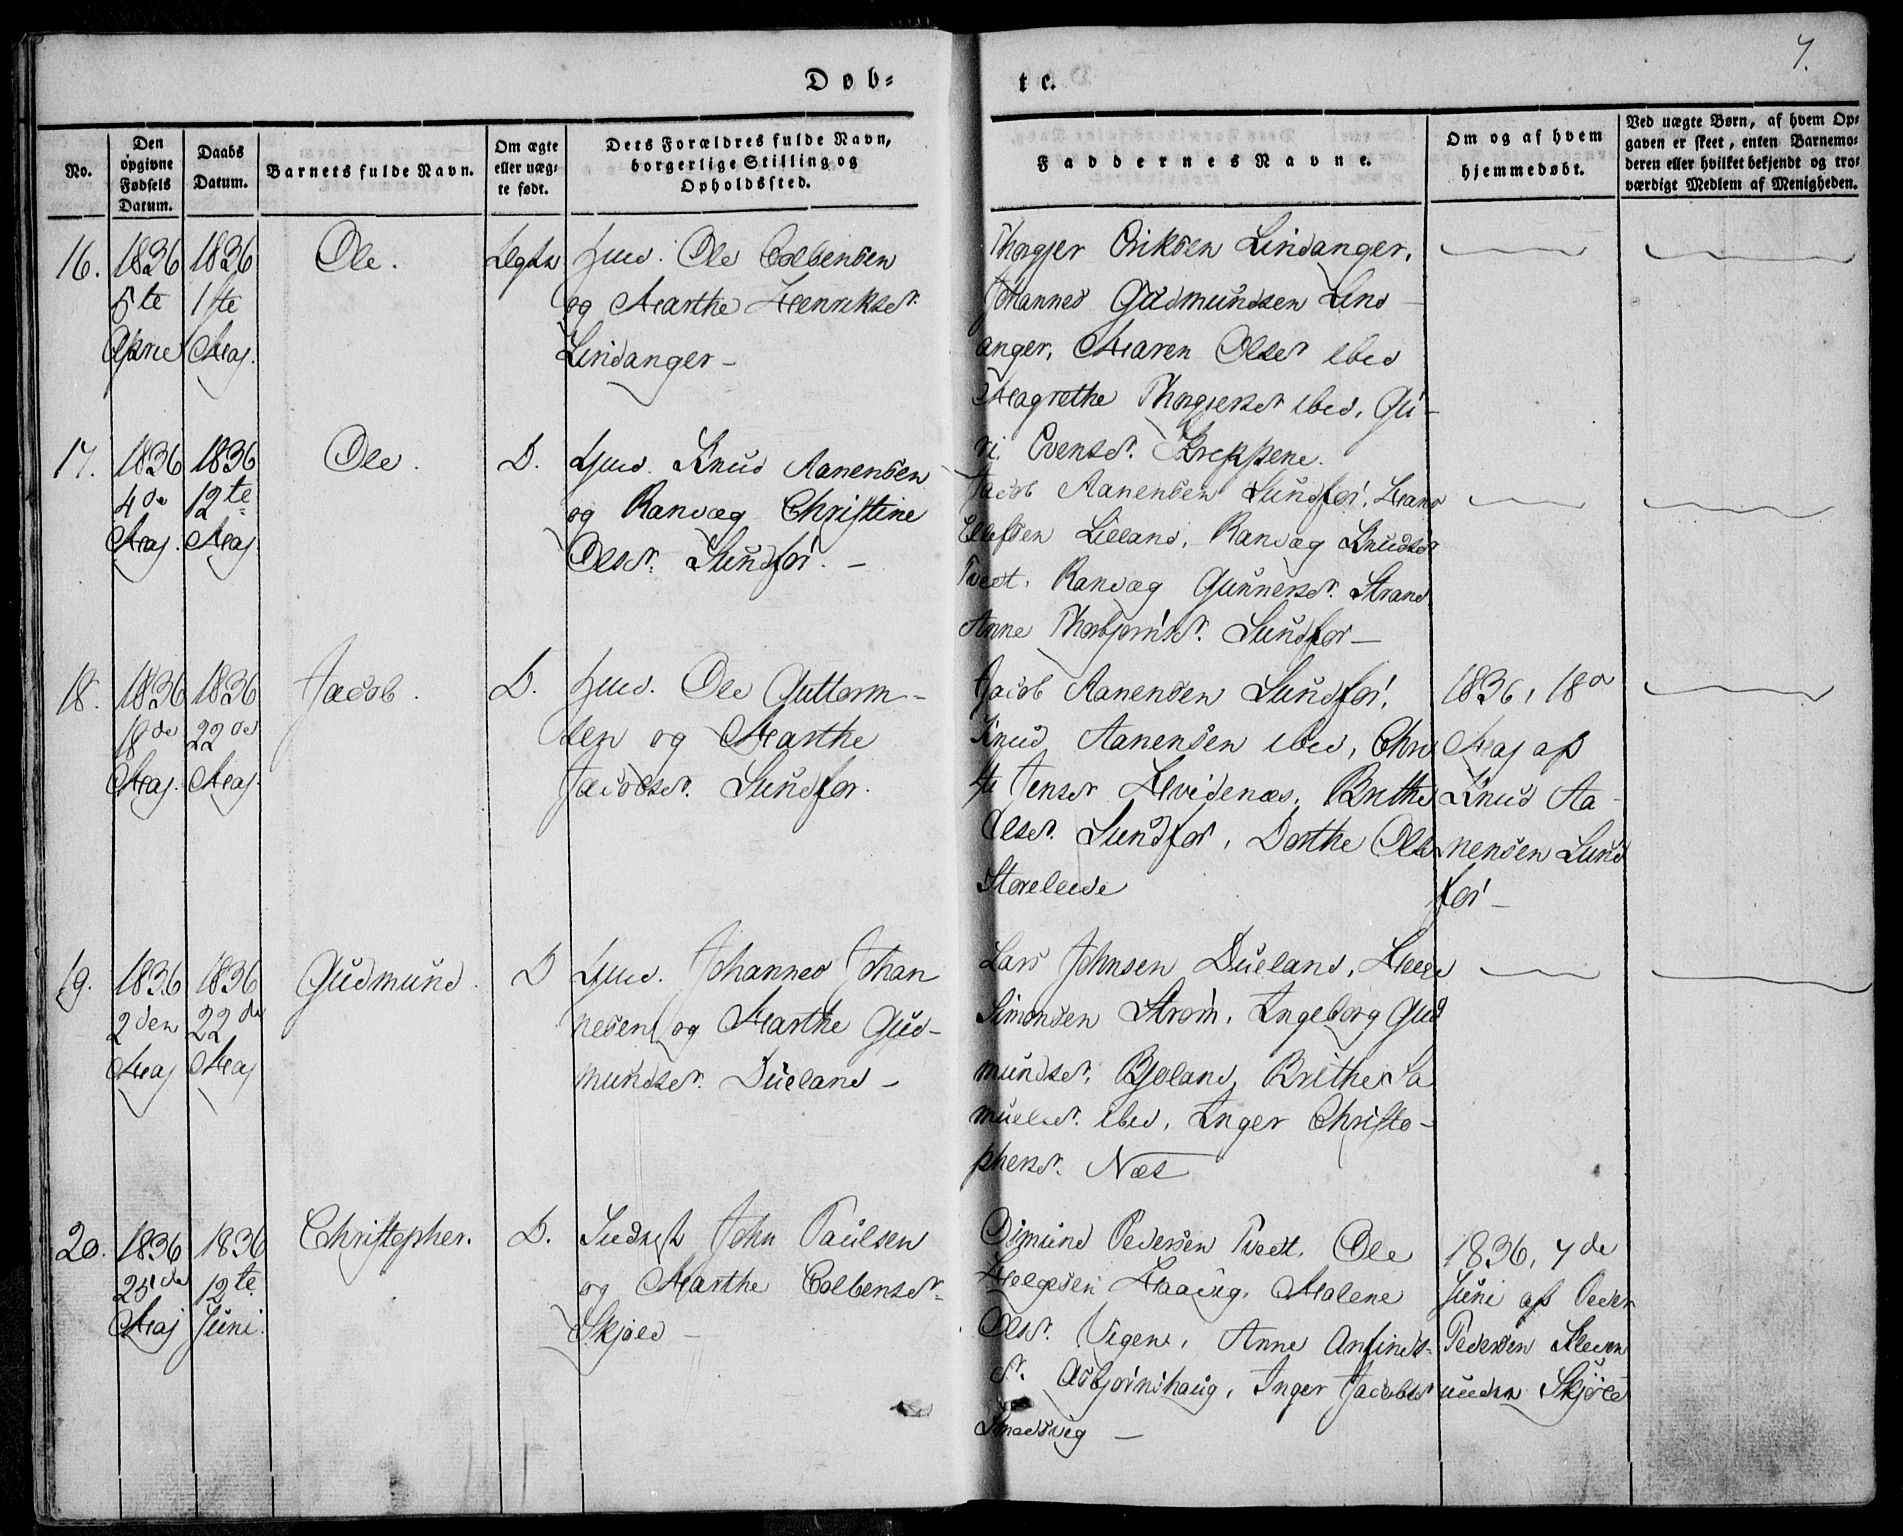 7.
Døb= te.
No.
Den opgivne Fødsels Datum.
Daabs Datum.
Barnets fulde Navn.
Om ægte eller uæg= te født.
Dets Forældres fulde Navn, borgerlige Stilling og Opholdssted.
Faddernes Navne.
Om og af hvem hjemmedøbt.
Ved uægte Børn, af hvem Op= gaven er skeet, enten Barnemo= deren eller hvilket bekjendt og tro= værdigt Medlem af Menigheden.
16. 1836 1836 Ole. Ægte Huus. Ole Colbensen
5te 1ste og Marthe Henriksdr.
April Maj. Lindanger –
Thorgjer Eriksen Lindanger,
Johannes Gudmundsen Lind
anger, Maren Olsdr ibid
Magrethe Thorgjersdr ibid, Gu–
ri Evensdr. Kreppene.
17. 1836 1836 Ole. D. Huus. Knud Aanensen
4de 12te og Ranvæg Christine
Maj. Maj. Olsdr. Sundfør. –
Jacob Aanensen Sundfør, Hans
Ellefsen Lieland, Ranvæg Knudsdr
Tvedt, Ranvæg Gunnersdr. Strand
Anne Thorbjørnsdr. Sundfør –
18. 1836 1836 Jacob. D. Huus. Ole Guttorm–
18de 22de sen og Marthe
Maj. Maj. Jacobsdr. Sundfør.
Jacob Aanensen Sundfør,
Knud Aanensen ibid, Chri
sti Jensdr Hvidenæs, Brithe
Olsdr. Sundfør, Dorthe Olsdr
Storeleede
1836, 18de
Maj af
Knud Aa–
nensen Sund
før –
19. 1836 1836 Gudmund. D Huus. Johannes Johan
2den 22de nesen og Marthe Gud–
Maj Maj mundsdr. Dueland –
Lars Johnsen Dueland,
Simonsen Strøm, Ingeborg Gud
mundsdr. Bjoland, Brithe Sa
muelsdr. ibid, Inger Christo–
phersdr. Næs
20. 1836 1836 Christopher. D. John Paulsen
25de 12te og Marthe Colbensdr.
Maj Juni. Skjold –
Osmund Pedersen Tvedt, Ole
Helgesen Haavig, Malene
Olsdr. Vigene, Anne Anfinds–
dr. Asbjørnshaug, Inger Jacobsdr
Smedsvig –
1836, 7de
Juni af Peder
Pedersen Kleven
Skjold